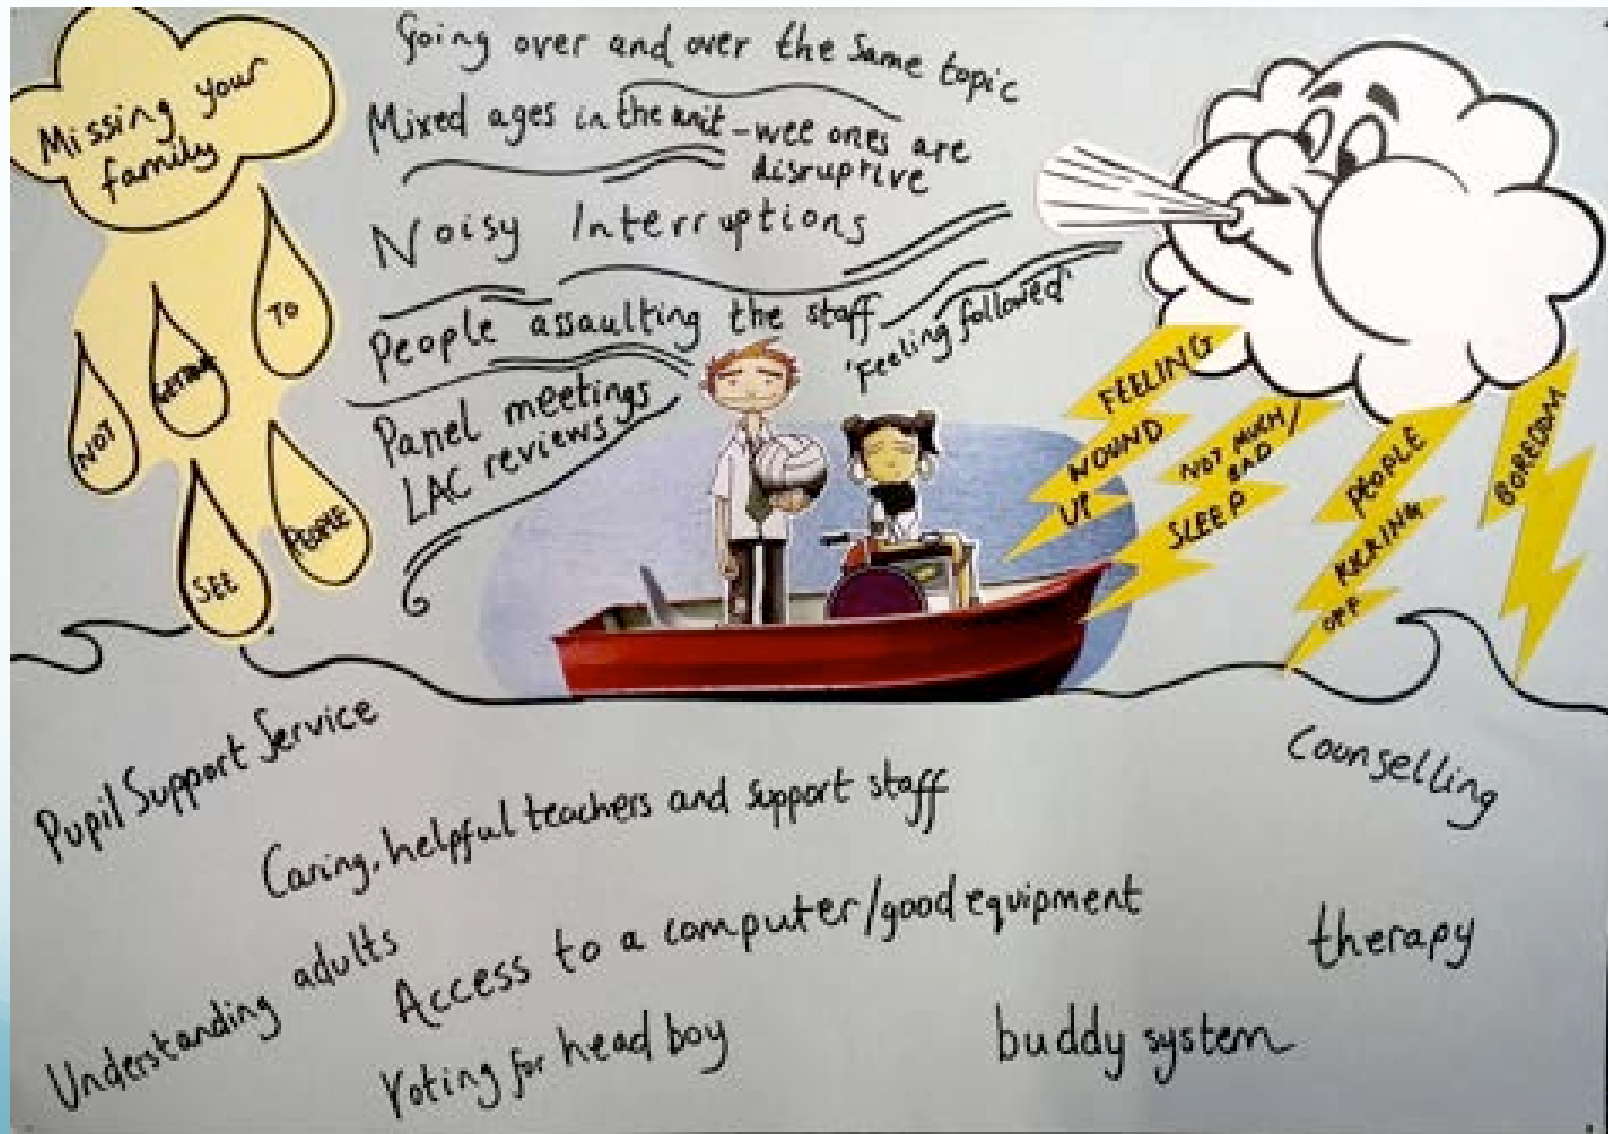 Missing your
family
NOT
GETTING
TO
SEE
PEOPLE
Going over and over the same topic
Mixed ages in the unit - wee ones are
disruptive
Noisy Interruptions
People assaulting the staff
'Feeling followed'
Panel meetings
LAC reviews
FEELING
WOUND
UP
NOT MUCH/
BAD
SLEEP
PEOPLE
KICKING
OFF
BOREDOM
Pupil Support Service
Caring, helpful teachers and support staff
Counselling
Understanding adults
Access to a computer/good equipment
therapy
Voting for head boy
buddy system